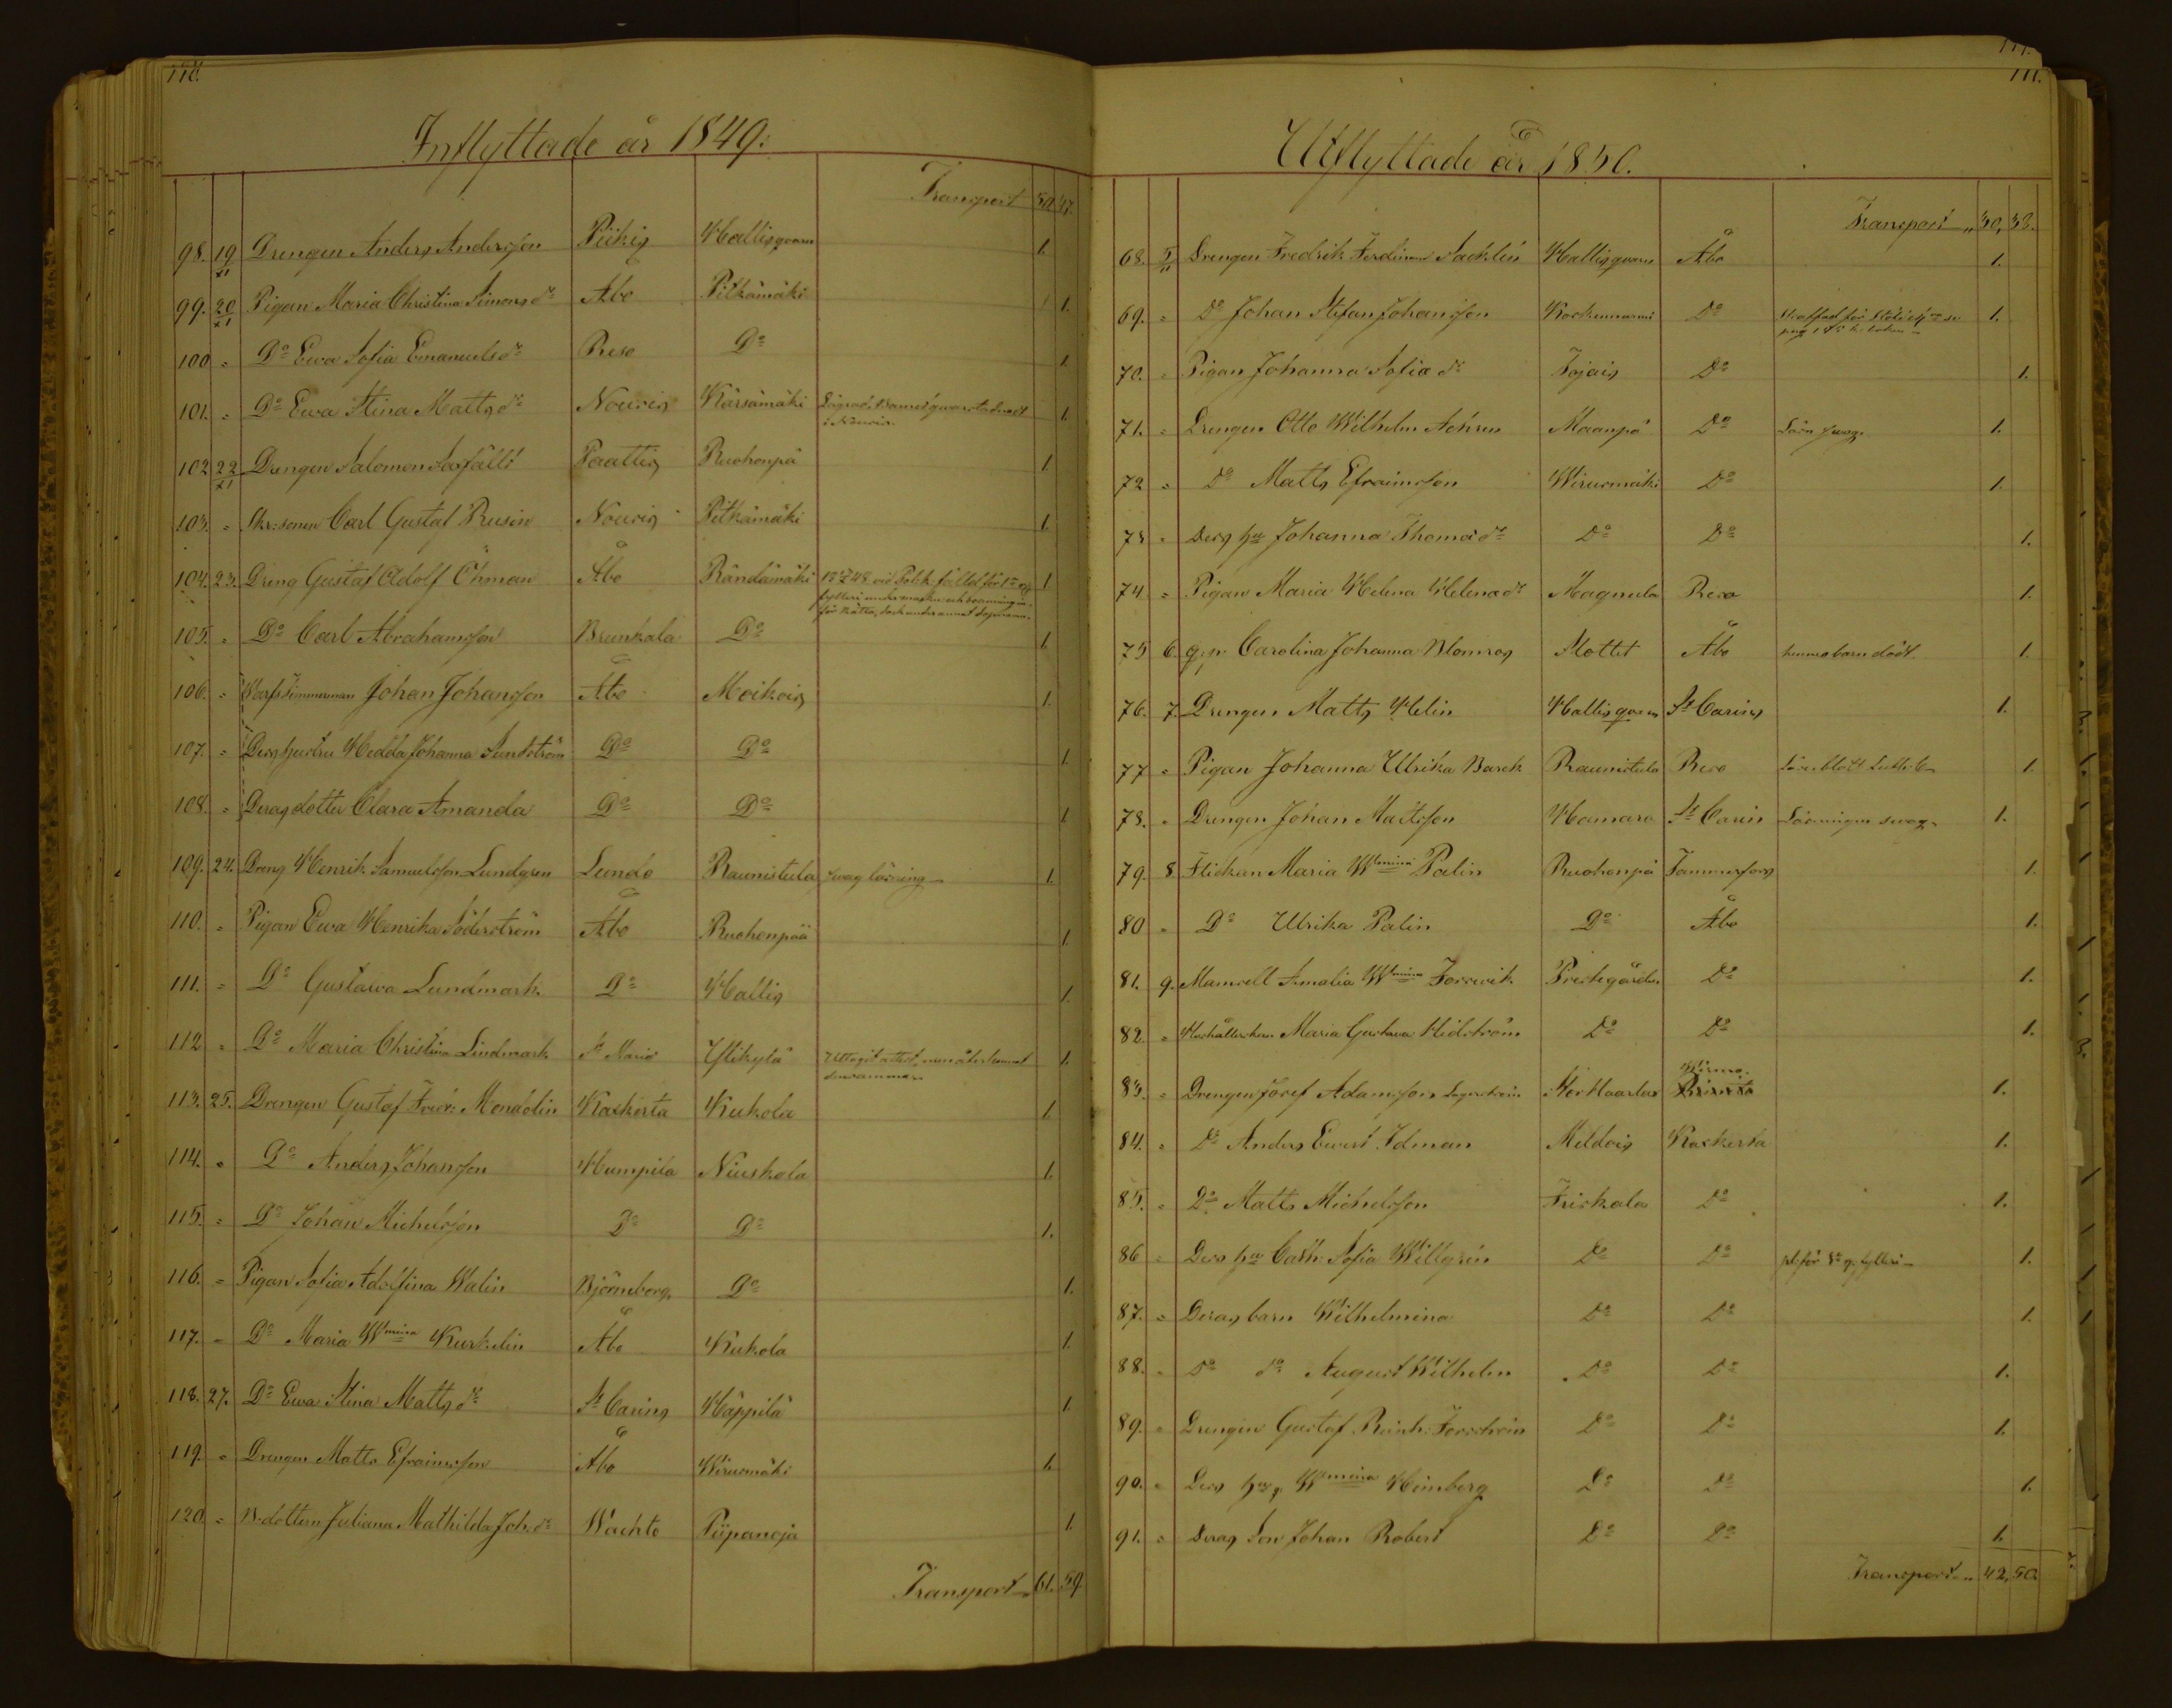 110.
Inflyttade år 1849:
Transport 50. 47.
98. 19/XI Drengen Anders Andersson Piikis Hallisqvarn 1.
99. 20/XI Pigan Maria Christina Simonsdr Åbo Pitkämäki 1.
100 = Do Ewa Sofia Emanuelsdr Reso Do 1.
101. = Do Ewa Stina Mattsdr Nousis Kärsämäki 1.
i Nousis.
102 22/XI Drengen Salomon Saxfält Paattis Ruohonpä 1.
103. = Skr: sonen Carl Gustaf Rusin Nousis Pitkämäki 1.
104. 23. Dreng Gustaf Adolf Öhman Åbo Rändämäki 1
105. = Do Carl Abrahamsson Brunkala Do 1.
106. = Warfstimmerman Johan Johansson Åbo Moikois 1.
107. = Dess hustru Hedda Johanna Sundström Do Do 1.
108. = Deras dotter Clara Amanda Do Do 1.
109. 24. Dreng Henrik Samuelsson Lundgren Lundo Raunistula swag läsning 1.
110. = Pigan Ewa Henrika Söderström Åbo Ruohonpää 1.
111. = Do Gustawa Lundmark Do Hallis 1.
112 = Do Maria Christina Lindmark St Mariæ Ylikylä Uttagit attest, men återkommit 1.
densamma
113. 25. Drengen Gustaf Fredr: Mondelin Kaskerta Kukola 1.
114. = Do Anders Johansson Humpila Niuskala 1.
115. = Do Johan Michelsson Do Do 1.
116. = Pigan Sofia Adolfina Walin Björneborg Do 1.
117. = Do Maria Wmina Kurkelin Åbo Kukola 1.
118. 27. Do Ewa Stina Mattsdr St Carins Häppilä 1
119. = Drengen Matts Efraimsson Åbo Wirusmäki 1.
120. = B. dottern Juliana Mathilda Joh.dr Wachto Piipanoja 1.
Transport 61. 59
111.
Utflyttade år 1850.
Transport 30, 38.
68. 5/II Drengen Fredrik Ferdinand Sacklén Hallisqvarn Åbo 1.
69. = Do Johan Stefan Johansson Do 1.
70. = Pigan Johanna Sofia dr Jojais Do 1.
71. = Drengen Otto Wilhelm Maanpä Do Läsn swag. 1.
72 = Do Matts Efraimsson Wirusmäki Do 1.
73 = Dess hu Johanna Thomædr Do Do 1.
74 = Pigan Maria Helena Helenædr Magnula Reso 1.
75 6. Carolina Johanna Blomros Slottet Åbo hennes barn dödt 1.
76. 7. Drengen Matts Helin Hallisqvarn St Carins 1.
77 = Pigan Johanna Ulrika Barck Raunistula Reso 1.
78. = Drengen Johan Mattsson Hamaro St Carin Läsningen swag. 1.
79. 8 Flickan Maria Wmina Palin Ruohonpä Tammerfors 1.
80 = Do Ulrika Palin Do Åbo 1.
81. 9. Mamsell Amalia Wmina Prestgården Do 1.
82. = Hushållerskan Maria Gustava Do Do 1.
Wirmo.
83. = Drengen Josef Adamsson Lagerström 1.
84. = Do Anders Ewert Idman Mildois Kaskerta 1.
85. = Do Matts Michelsson Friskala Do 1.
86 = Dess hu Cath: Sofia Willgrén Do Do 1.
87. = Deras barn Wilhelmina Do Do 1.
88. = Do do August Wilhelm Do Do 1.
89. = Drengen Gustaf Reinh: Forsström Do Do 1.
90. = Dess Wmina Heimberg Do Do 1.
91. = Deras Son Johan Robert Do Do 1.
Transport 42, 50.